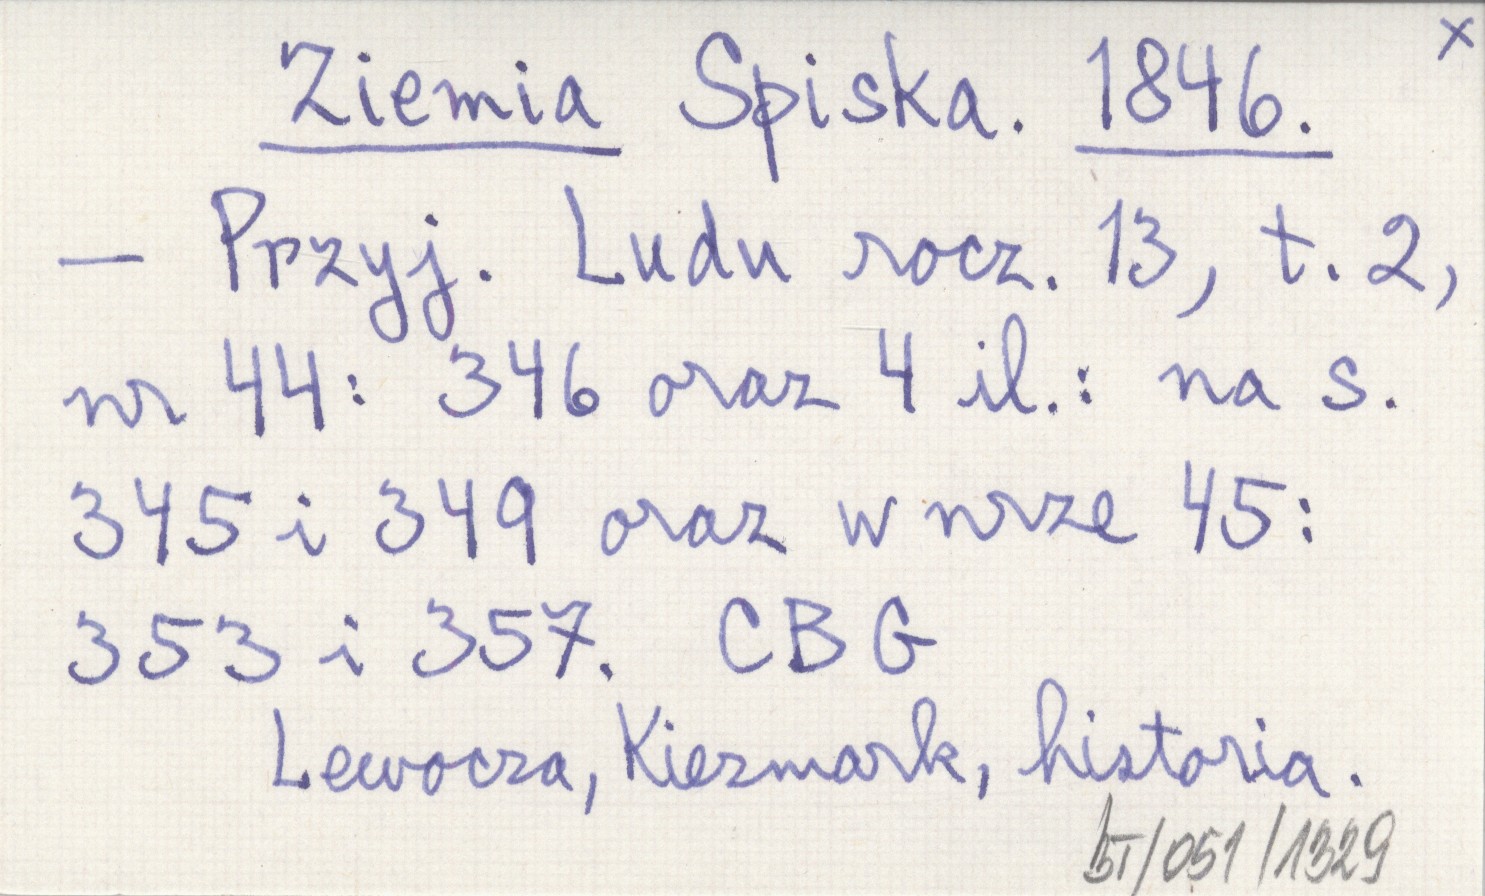 Ziemia Spiska. 1846. x
— Przyj. Ludu rocz. 13, t. 2,
nr 44: 346 oraz 4 il.: na s.
345 i 349 oraz w nrze 45:
353 i 357. CBG
Lewocza, Kiezmark, historia.
BT/051/1329